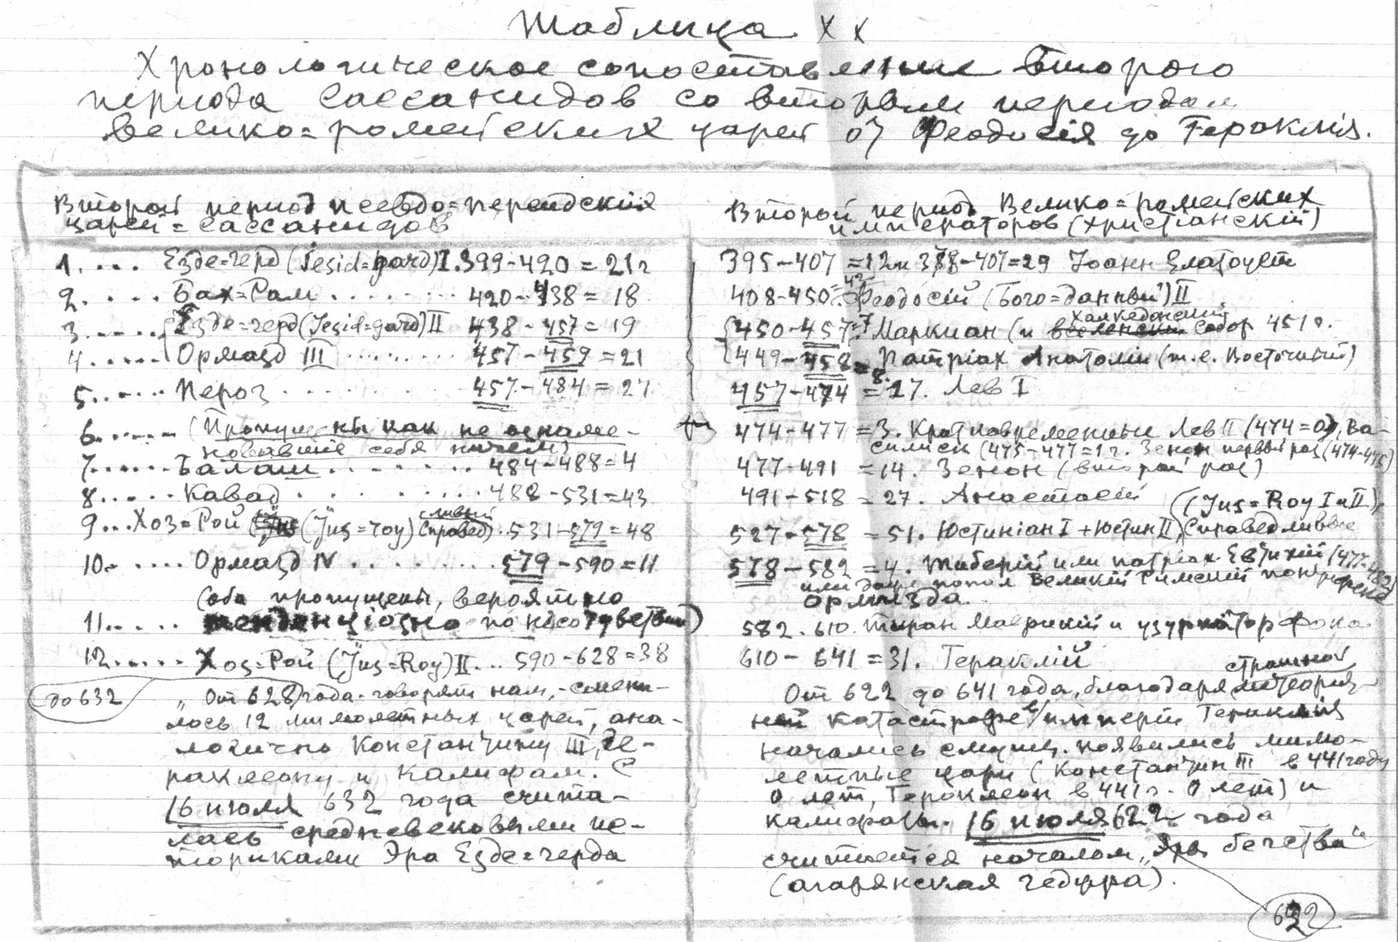 Таблица XX
Хронологическое сопоставление второго
периода Сассанидов со вторым периодом
велико=ромейских царей от Феодосія до Гераклія.
Второй период псевдо=персидскій
царей=Сассанидов
1.... Езде=герд (Jesid=gard) I. 399-420 = 21 г
2..... Бах=Рам ........ 420-438 = 18
3..... Езде=герд (Jesid=gard) II 438-457 = 19
4..... Ормазд III ........ 457-459 = 21
5..... Пероз ........ 457-484 = 27
6...... (Пропущены как не ознаме-
новавшие себя ничем)
7..... Балаш ....... 484-488 = 4
8..... Кавад ........ 488-531 = 43
9... Хоз=Рой (Jus=roy) Справедливый . 531-579 = 48
10..... Ормазд IV ....... 579-590 = 11
(Оба пропущены, вероятно
11..... тенденціозно по несоответствию)
12...... Хоз=Рой (Jus=Roy) II... 590-628 = 38
до 632
„От 628 года - говорят нам, - смени-
лось 12 мимолетных царей, ана-
логично Константину III, Ге-
раклеону и Калифам. С
16 июля 632 года счита-
лась средневековыми ис-
ториками Эра Езде=герда
Второй период Велико=ромейских
императоров (христіанскій)
395-407 = 12 и 378-407 = 29 Іоанн Златоуст
408-450 = 42 Феодосій (Бого=данный) II
450-457 = 7 Маркиан (и халкедонский собор 451 г.
449-458 = 8 Патріах Анатолій (т.е. Восточный)
457-474 = 17. Лев I
474-477 = 3. Кратковременные Лев II (474 = 0), Ва-
силиск (475-477 = 1 г. Зенон первый раз (474-475)
477-491 = 14. Зенон (второй раз)
491-518 = 27. Анастасій
((Jus=Roy I и II),
527-578 = 51. Юстиніан I + Юстин II, Справедливые
578-582 = 4. Тиберій или патріах Евтихий (477-482)
или даже попал Великій Римский понтифекс
Ормазда.
582-610. Тиран Маврикий и узурпатор Фока
610-641 = 31. Гераклій
От 622 до 641 года, благодаря страшной метеорит-
ной катастрофе в имперіи Гераклия
начались смуты. появились мимо-
летные цари (Константин III в 441 году
0 лет, Гераклеон в 441 г. 0 лет) и
калифаты. 16 июля 622 года
считается началом „Эры бегства"
(агарянская гедџра).
632